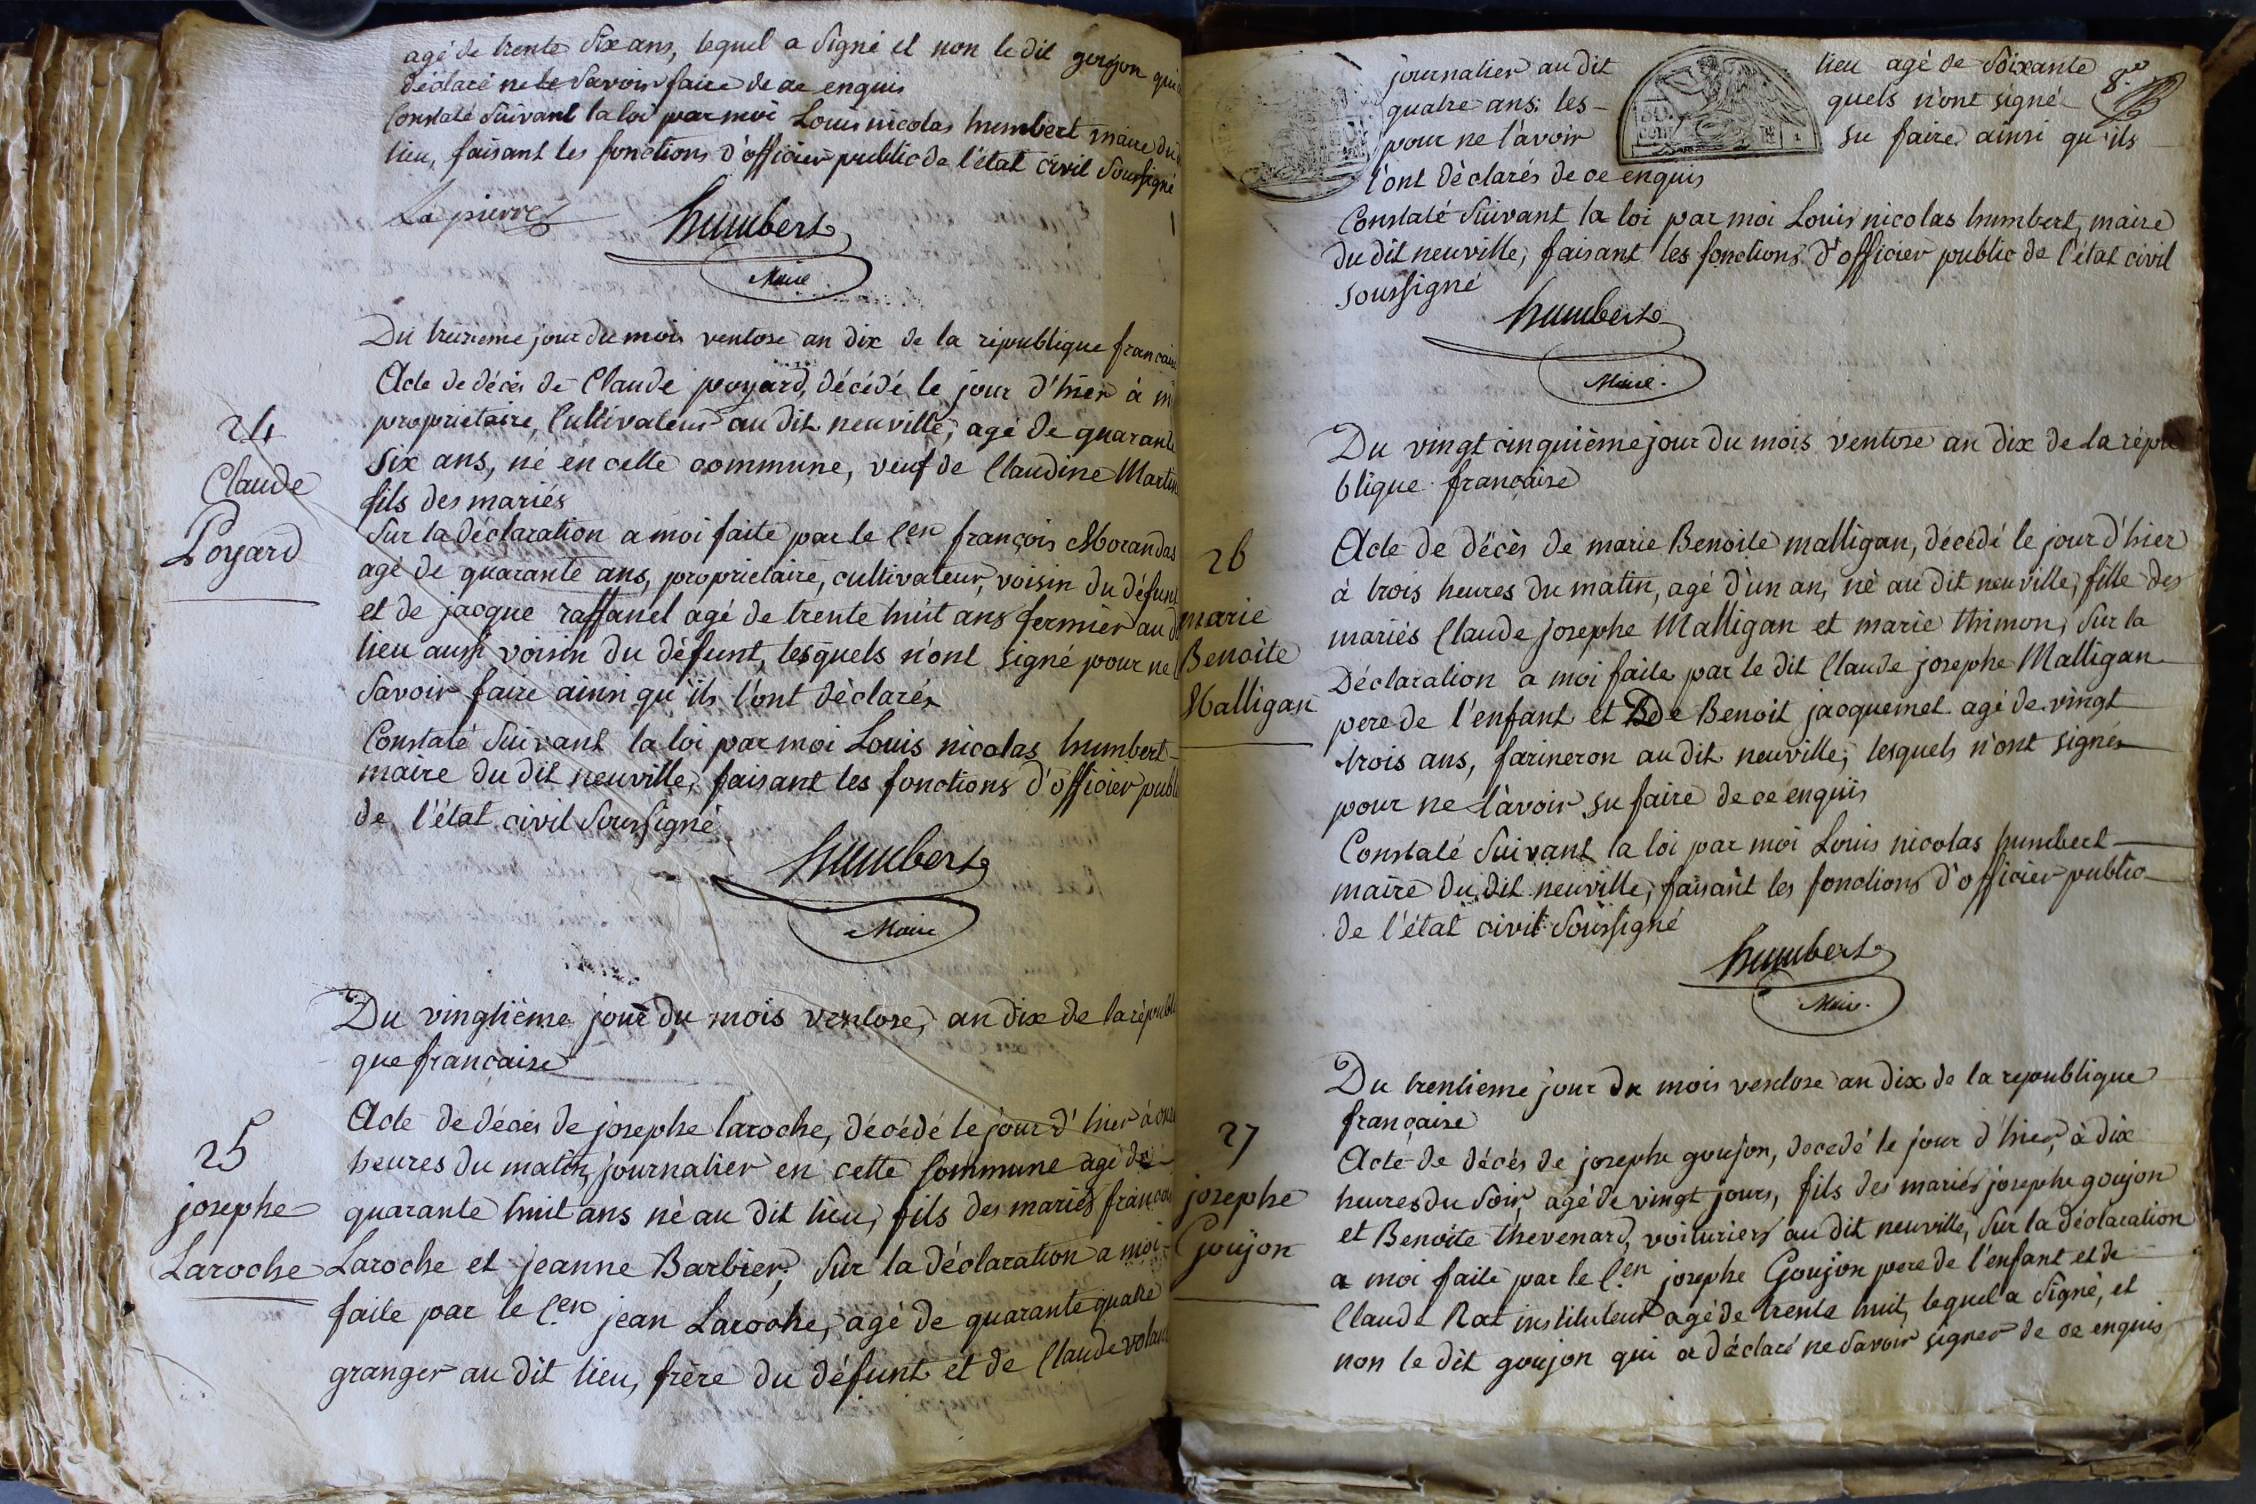 agé de trente Six ans, lequel a Signé et non le dit goujon qui
déclaré ne le Savoir faire de ce enquis
Constaté Suivant la loi par moi Louis nicolas humbert maire du
lieu, faisant les fonctions d'officier public de l'état civil Soussigné
La pierre
humbert
Maire
Du treizieme jour du mois ventose an dix de la république francaise
24
Claude
Poyard
Acte de décés de Claude poyard, décédé le jour d'hier à
proprietaire, Cultivateur au dit neuville, agé de quarante
Six ans, né en celle commune, veuf de Claudine Martin
fils des mariés
Sur la déclaration a moi faite par le Cen françois Morandas
agé de quarante ans, proprietaire, cultivateur, voisin du défunt
et de jacque raffanel agé de trente huit ans fermier au
lieu aussi voisin du défunt, lesquels n'ont signé pour ne
Savoir faire ainsi qu'ils l'ont déclarés
Constaté Suivant la loi par moi Louis nicolas humbert
maire du dit neuville, faisant les fonctions d'officier publ
de l'état civil Soussigné
humbert
Maire
Du vingtième jour du mois ventose, an dix de la républi
que francaise
25
josephe
Laroche
Acte de décés de josephe laroche, décédé le jour d'hier à onze
heures du matin, journalier en cette Commune agé de
quarante huit ans né au dit lieu, fils des mariés françois
Laroche et jeanne Barbier, Sur la déclaration a moi
faite par le Cen jean Laroche, agé de quarante quatre
granger au dit lieu, frère du défunt et de Claude volan
journalier au dit lieu agé de Soixante
8e
quatre ans les- quels n'ont signé
pour ne l'avoir su faire ainsi qu'ils
l'ont déclarés de ce enquis
Constaté Suivant la loi par moi Louis nicolas humbert, maire
du dit neuville, faisant les fonctions d'officier public de l'état civil
soussigné
humbert
Maire.
Du vingt cinquième jour du mois ventose an dix de la répu
blique francaise
26
marie
Benoite
Malligan
Acte de décès de marie Benoite malligan, décédé le jour d'hier
à trois heures du matin, agé d'un an, né au dit neuville, fille des
mariés Claude josephe Malligan et marie thimon, Sur la
Déclaration a moi faite par le dit Claude josephe Malligan
pere de l'enfant et De Benoit jacquemet agé de vingt
trois ans, farineron au dit neuville, lesquels n'ont signés
pour ne l'avoir su faire de ce enquis
Constaté Suivant la loi par moi Louis nicolas humbert
maire du dit neuville, faisant les fonctions d'officier public
de l'état civil Soussigné
humbert
Maire.
Du trentieme jour du mois ventose an dix de la republique
française
27
josephe
Goujon
Acte de décés de josephe goujon, decedé le jour d'hier, à dix
heures du Soir, agé de vingt jours, fils des mariés josephe goujon
et Benoite thevenard, voituriers au dit neuville, Sur la déclaration
a moi faite par le Cen josephe Goujon pere de l'enfant et de
Claude Rat instituteur agé de trente huit, lequel a Signé, et
non le dit goujon qui a déclaré ne Savoir signer de ce enquis